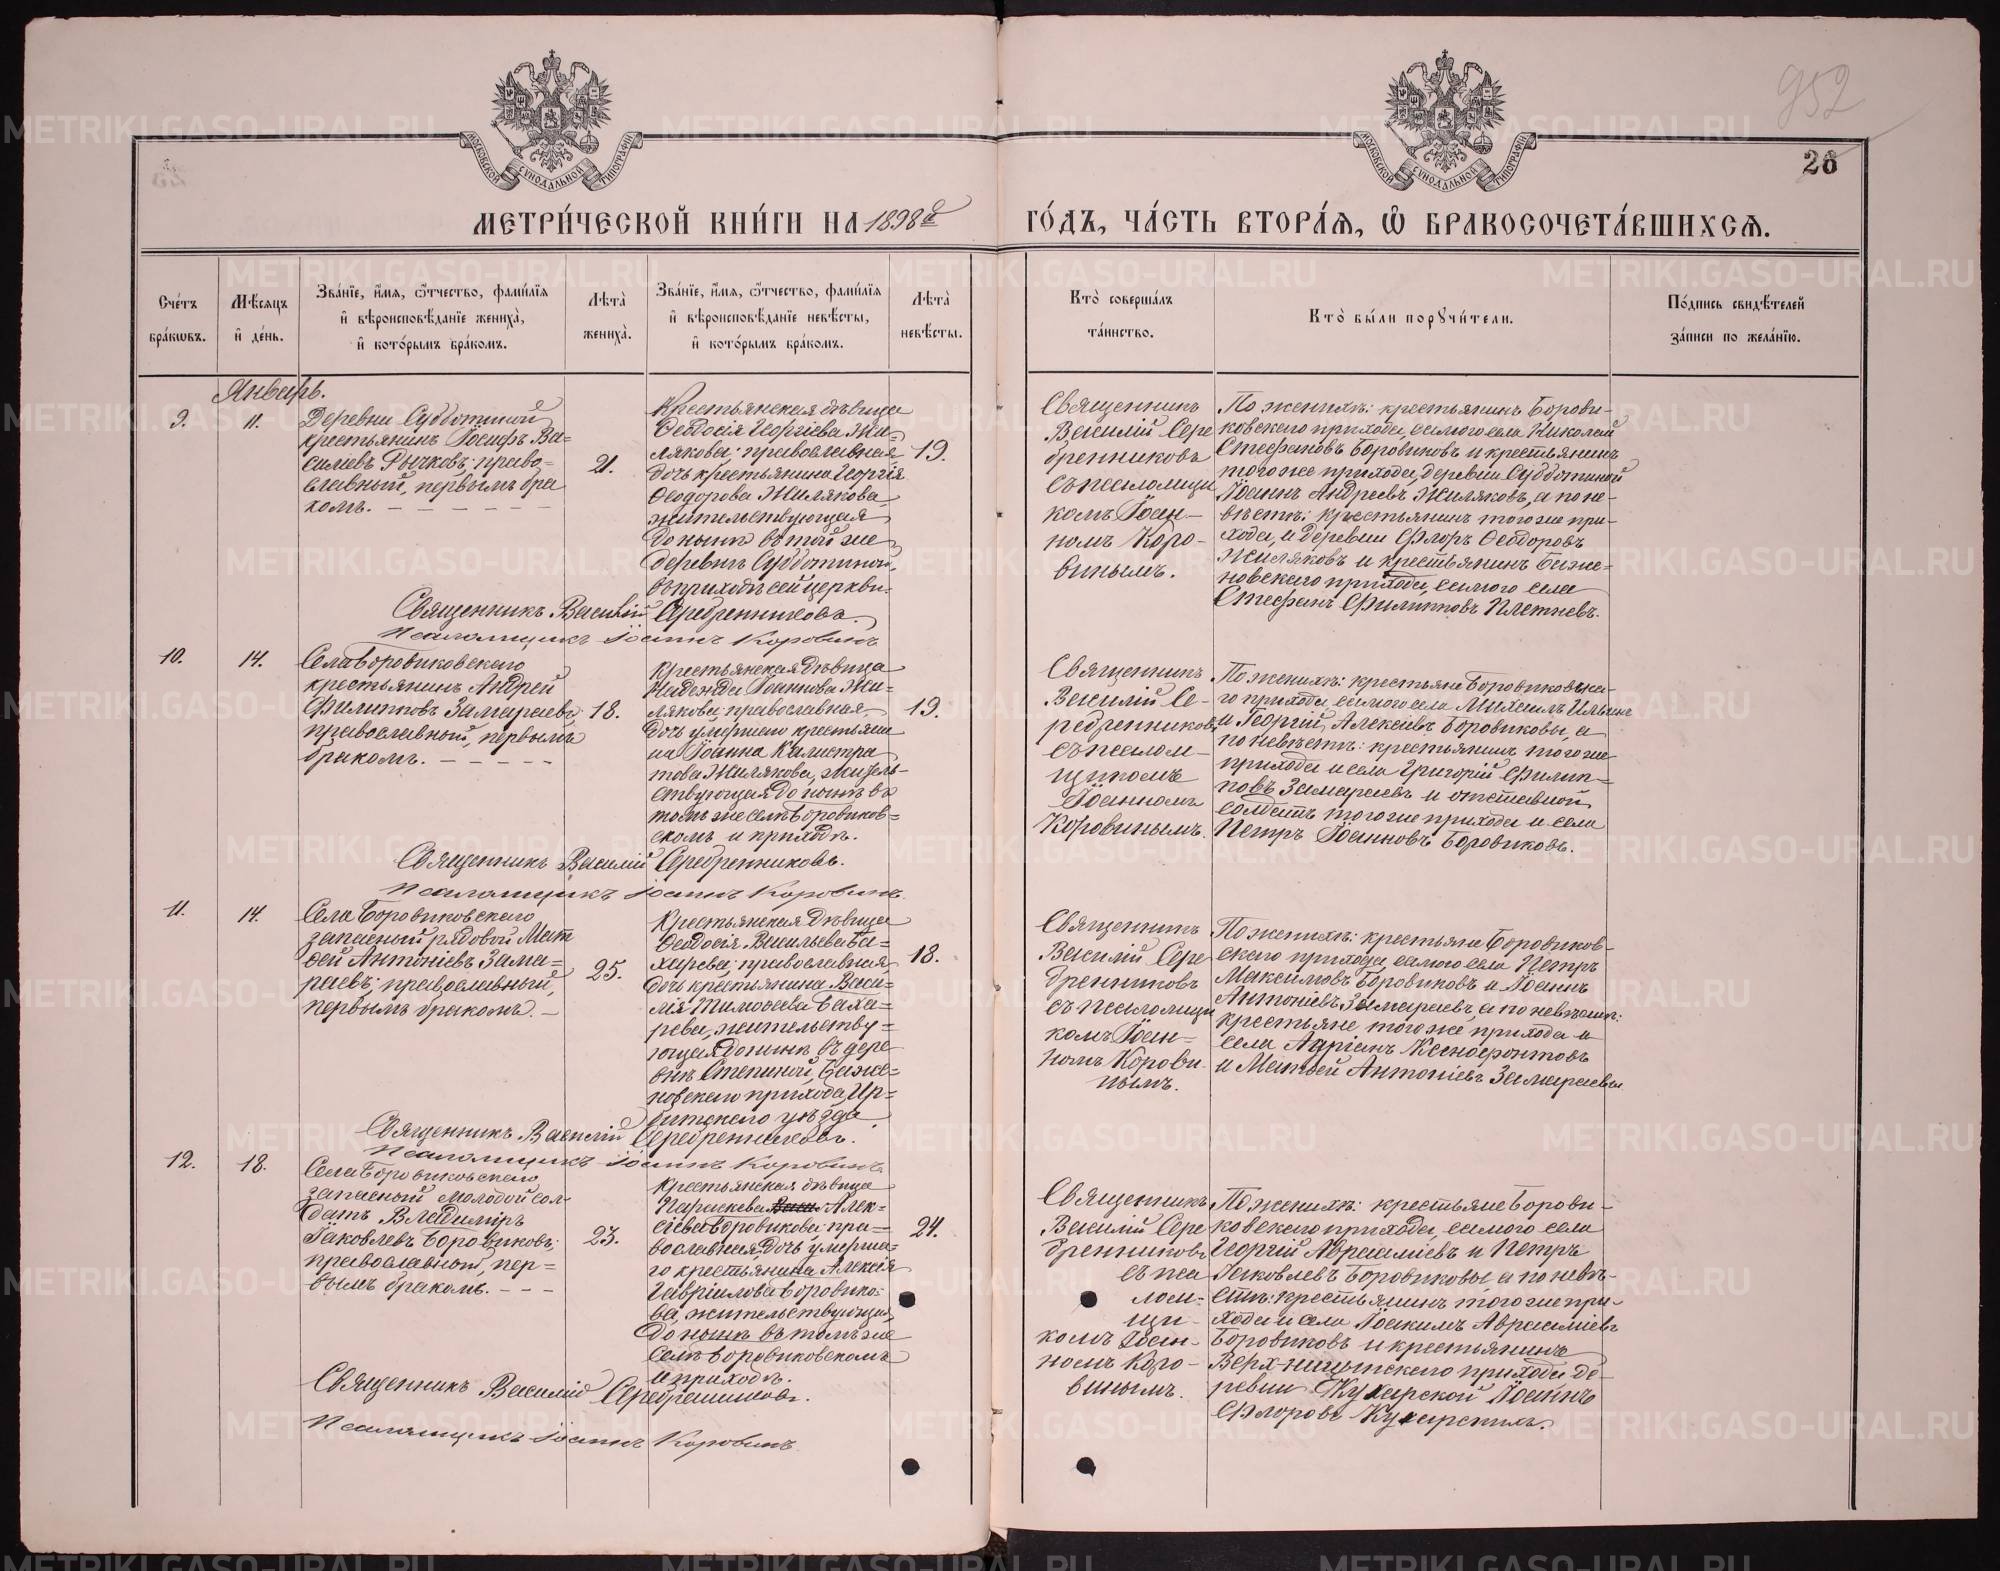 952
26
МОСКОВСКОЙ СѴНОДАЛЬНОЙ ТИПОГРАФІИ
МОСКОВСКОЙ СѴНОДАЛЬНОЙ ТИПОГРАФІИ
МЕТРИ́ЧЕСКОЙ КНИ́ГИ НА 1898й ГО́ДЪ, ЧА́СТЬ ВТОРА́Я, Ѽ БРАКОСОЧЕТА́ВШИХСЯ.
Сче́тъ
бра́ковъ.
Мѣ́сяцъ
и́ де́нь.
Зва́нїе, и́мя, ѻ́тчество, фами́лїя
и́ вѣроисповѣ́данїе жениха̀,
и́ кото́рымъ бра́комъ.
Лѣ́та̀
жениха̀.
Зва́нїе, и́мя, ѻ́тчество, фами́лїя
и́ вѣроисповѣ́данїе невѣ́сты,
и́ кото́рымъ бра́комъ.
Лѣ́та̀
невѣ́сты.
Кто̀ соверша́лъ
та́инство.
Кто̀ бы́ли порꙋчи́тели.
По́дпись свидѣ́телей
за́писи по жела́нїю.
Январь.
9.
11.
Деревни Субботиной
крестьянинъ Іосифъ Ва=
силіевъ Рычковъ; право=
славный, первымъ бра
комъ.
21.
Крестьянская дѣвица
Ѳеодосія Георгіева Жи=
лякова; православная
дочь крестьянина Георгія
Ѳеодорова Жилякова,
жительствующая
донынѣ въ той же
деревни Субботиной,
въ приходѣ сей церкви.
19.
Священникъ
Василій Сере
бренниковъ
съ псаломщи
комъ Іоан-
номъ Коро-
винымъ.
По женихѣ: крестьянинъ Борови-
ковскаго прихода, самого села Николай
Стефановъ Боровиковъ и крестьянинъ
того же прихода, деревни Субботиной
Іоаннъ Андреевъ Жиляковъ, а по не-
вѣстѣ: крестьянинъ того же при-
хода, и деревни Флоръ Ѳеодоровъ
Жиляковъ и крестьянинъ Баже-
новскаго прихода, самого села
Стефанъ Филипповъ Плетневъ.
Священникъ Василій Серебренниковъ.
Псаломщикъ Іоаннъ Коровинъ
10.
14.
Села Боровиковскаго
крестьянинъ Андрей
Филипповъ Замараевъ,
православный, первымъ
бракомъ.
18.
Крестьянская дѣвица
Надежда Іоаннова Жи-
лякова; православная,
дочь умершаго крестьяни
на Іоанна Калистра
това Жилякова, житель-
ствующая донынѣ въ
томъ же селѣ Боровиков=
скомъ и приходѣ.
19.
Священникъ
Василій Се-
ребренниковъ
съ псалом-
щикомъ
Іоанномъ
Коровинымъ.
По женихѣ: крестьяне Боровиковска-
го прихода, самого села Михаилъ Ильинъ
и Георгій Алексіевъ Боровиковы, а
по невѣстѣ: крестьянинъ того же
прихода и села Григорій Филип=
повъ Замараевъ и отставной
солдатъ того же прихода и села
Петръ Іоанновъ Боровиковъ.
Священникъ Василій Серебренниковъ.
Псаломщикъ Іоаннъ Коровинъ.
11.
14.
Села Боровиковскаго
запасный рядовой Мат
ѳей Антоніевъ Зама=
раевъ; православный,
первымъ бракомъ.
25.
Крестьянская дѣвица
Ѳеодосія Васильева Ба=
харева; православная,
дочь крестьянина Васи=
лія Тимоѳеева Баха-
рева, жительству=
ющая донынѣ въ дере
внѣ Степиной, Баже=
новскаго прихода, Ир=
битскаго уѣзда.
18.
Священникъ
Василій Сере
бренниковъ
съ псаломщи
комъ Іоан=
номъ Корови
нымъ.
По женихѣ: крестьяне Боровиков-
скаго прихода, самого села Петръ
Максимовъ Боровиковъ и Іоаннъ
Антоніевъ Замараевъ, а по невѣстѣ:
крестьяне того же прихода и
села Адріанъ Ксенофонтовъ
и Матѳей Антоніевъ Замараевы
Священникъ Василій Серебренниковъ.
Псаломщикъ Іоаннъ Коровинъ.
12.
18.
Села Боровиковскаго
запасный молодой сол-
датъ Владиміръ
Іаковлевъ Боровиковъ;
православный, пер=
вымъ бракомъ.
23.
Крестьянская дѣвица
Параскева Алек-
сіева Боровикова; пра=
вославная, дочь умерша=
го крестьянина Алексія
Гавріилова Боровико-
ва, жительствующая,
донынѣ въ томъ же
селѣ Боровиковскомъ
и приходѣ.
24.
Священникъ
Василій Сере
бренниковъ
съ пса
лом=
щи-
комъ Іоан-
номъ Коро-
винымъ.
По женихѣ: крестьяне Борови-
ковскаго прихода, самого села
Георгій Авраамievъ и Петръ
Іаковлевъ Боровиковы, а по невѣ-
стѣ: крестьянинъ того же при-
хода и села Іоакимъ Авраамievъ
Боровиковъ и крестьянинъ
Верх-ницынскаго прихода де-
ревни Кухарской Іоаннъ
Флоровъ Кухарскихъ.
Священникъ Василій Серебренниковъ.
Псаломщикъ Іоаннъ Коровинъ
METRIKI.GASO-URAL.RU